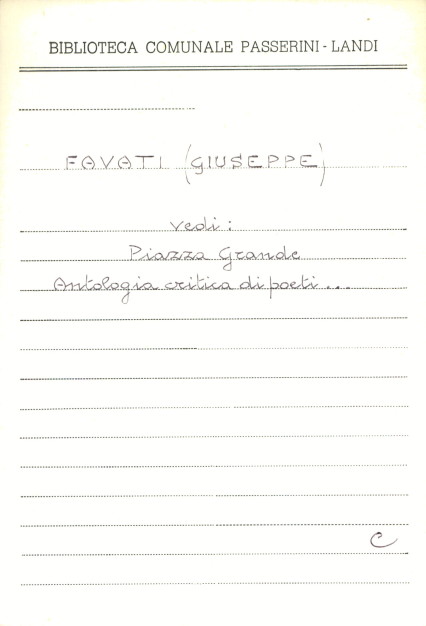 BIBLIOTECA COMUNALE PASSERINI - LANDI
FAVATI (GIUSEPPE)
vedi :
Piazza Grande
Antologia critica di poeti ...
C